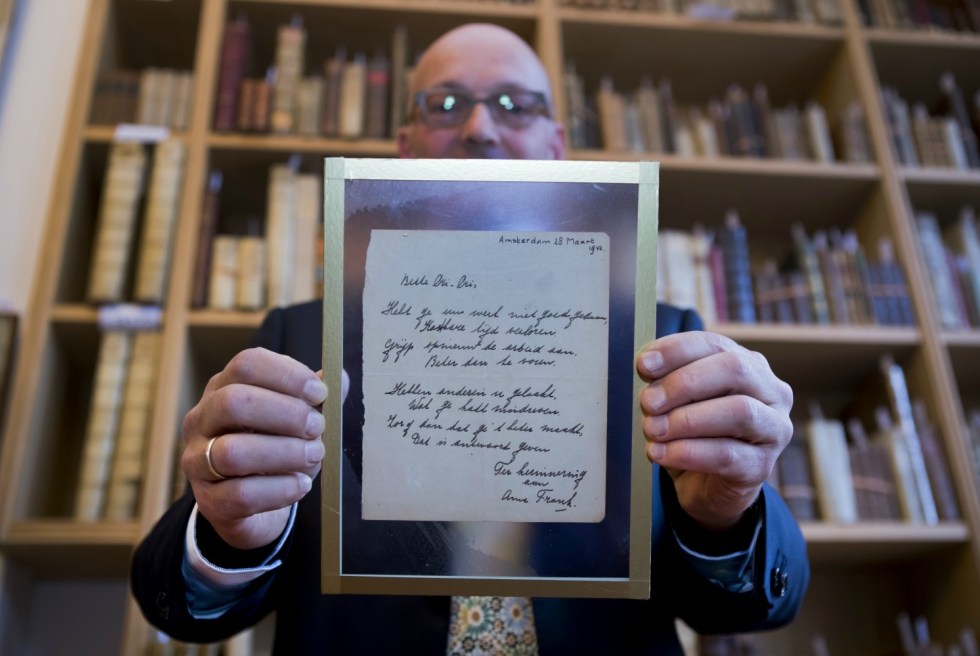 Amsterdam 28 Maart
1942.
Beste Cri-Cri,
Hebt ge uw werk niet goed gedaan,
Kostbare tijd verloren
Grijp opnieuwt de arbeid aan.
Beter dan te voren.
Hebben anderen u gelaakt,
Wat ge hadt misdreven.
Zorg dan dat ge 't beter maakt,
Dat is antwoord geven
Ter herinnering
aan
Anne Frank.